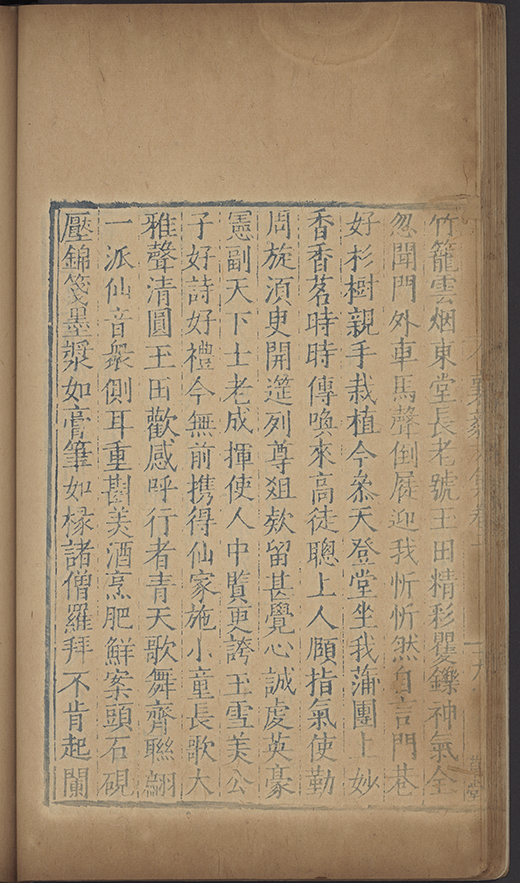 竹籠雲烟東堂長老號玉田精彩矍鑠神氣全
忽聞門外車馬聲倒屣迎我忻忻然自言門巷
好杉樹親手栽植今叅天登堂坐我蒲團上妙
香香茗時時傳喚來高徒聰上人頤指氣使勤
周旋湏臾開筵列尊爼欵留甚覺心誠䖍英豪
憲副天下士老成揮使人中賢更誇玉雪美公
子好詩好禮今無前携得仙家施小童長歌大
雅聲清圓玉田歡感呼行者青天歌舞齊聯翩
一派仙音衆側耳重斟美酒烹肥鮮案頭石硯
壓錦箋墨漿如膏筆如椽諸僧羅拜不肯起闌